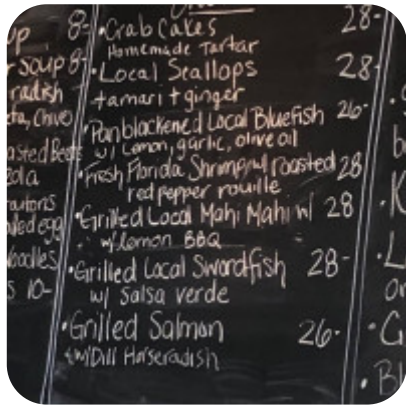 up 8-
r soup 8-
radish
eta, Chivo
asted Beets
zola
routons
oiled egg
Noodles
s 10-
•Crab Cakes 28-
Homemade Tartar
•Local Scallops 28-
tamari + ginger
•Panblackened Local Bluefish 26-
w/ Lemon, garlic, olive oil
•Fresh Florida Shrimp w/ roasted 28
red pepper rouille
•Grilled Local Mahi Mahi w/ 28
w/ lemon BBQ
•Grilled Local Swordfish 28-
w/ Salsa verde
•Grilled Salmon 26-
w/ Dill Horseradish